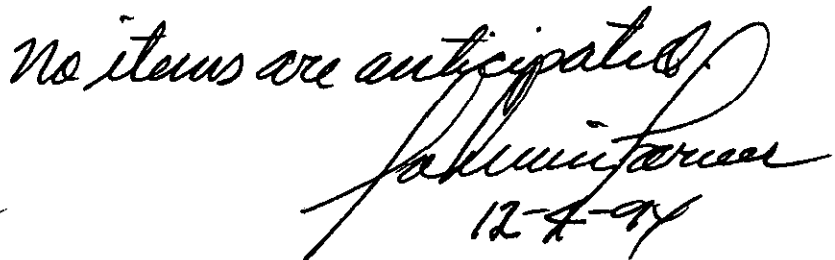 No items are anticipated.
12-2-94